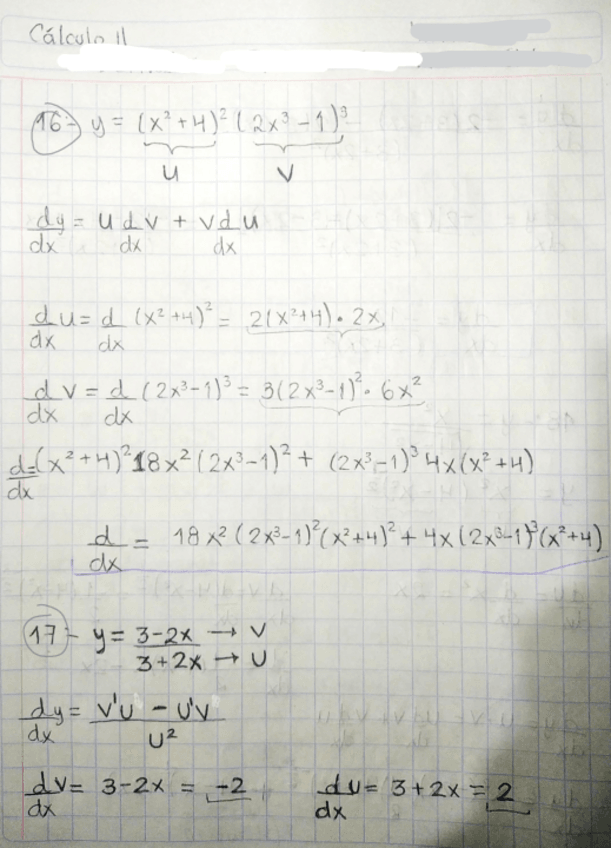 Cálculo II
16- y = (x² + 4)² (2x³ - 1)³
u v
dy/dx = u dv/dx + v du/dx
d/dx u = d/dx (x² + 4)² = 2(x² + 4) • 2x
d/dx v = d/dx (2x³ - 1)³ = 3(2x³ - 1)² • 6x²
d/dx = (x² + 4)² 18x² (2x³ - 1)² + (2x³ - 1)³ 4x (x² + 4)
d/dx = 18x² (2x³ - 1)² (x² + 4)² + 4x (2x³ - 1)³ (x² + 4)
17- y = 3 - 2x → v
3 + 2x → u
dy/dx = v'u - u'v / u²
dv/dx = 3 - 2x = -2 du/dx = 3 + 2x = 2